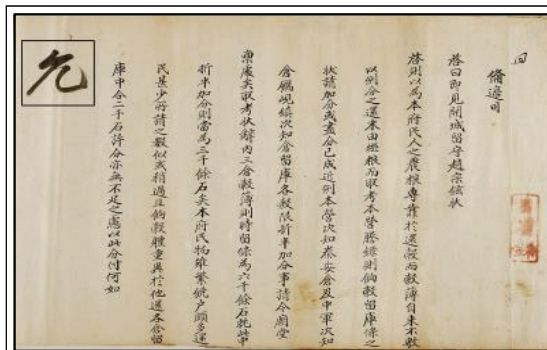 回
備邊司
啓曰即見開城留守趙宗鉉狀
啓則以爲本府民人之農粮專靠於還穀而穀簿自來不敷
以例分之還末由繼粮而取考本營謄錄則餉穀留庫條之
狀請加分或盡分已成近例本營次知泰安倉及中軍次知
倉礪峴鎭次知倉留庫各穀限折半加分事請令廟堂
稟處矣取考狀辭內三倉穀簿則時留條爲六千餘石就其中
折半加分則當爲三千餘石矣本府民物雖繁饒戶頗多還
民甚少所請之數似或稍過且餉穀體重異於他還各倉留
庫中合二千石許分亦無不足之慮以此分付何如
允